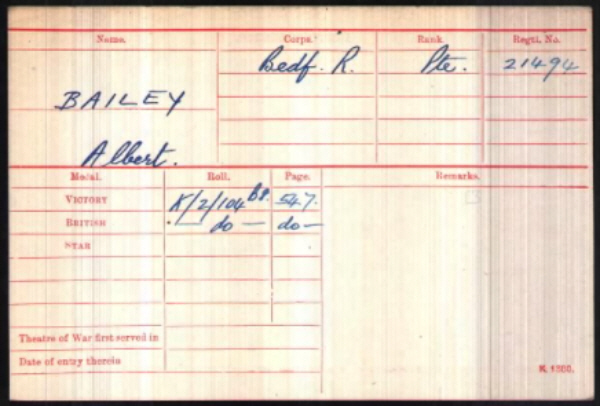 Name. Corps. Rank Regtl. No.
Bedf. R. Pte. 21494
BAILEY
Albert.
Medal. Roll. Page. Remarks.
VICTORY K/2/104 B8. 547.
BRITISH — do — do —
STAR
Theatre of War first served in
Date of entry therein
K. 1380.